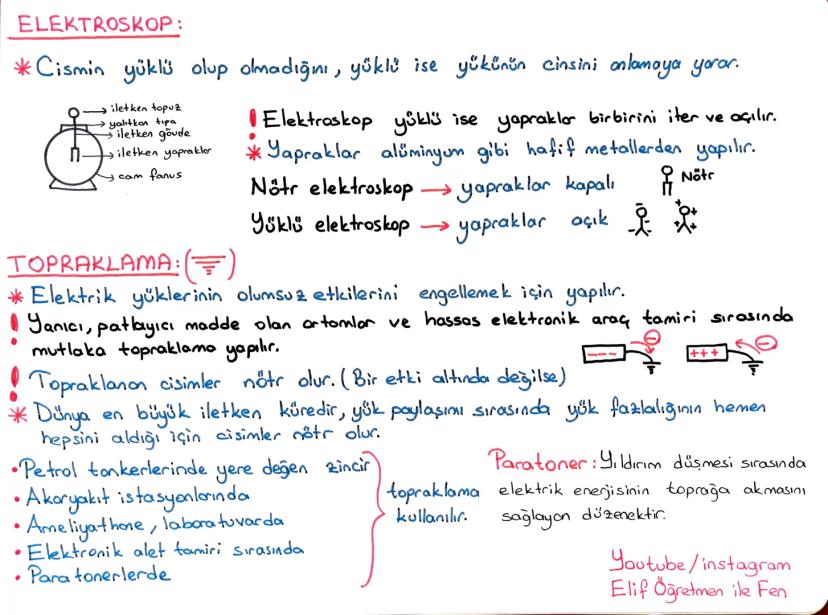 ELEKTROSKOP:
* Cismin yüklü olup olmadığını, yüklü ise yükünün cinsini anlamaya yarar.
iletken topuz
yalıtkan tıpa
iletken gövde
iletken yapraklar
cam fanus
! Elektroskop yüklü ise yapraklar birbirini iter ve açılır.
* Yapraklar alüminyum gibi hafif metallerden yapılır.
Nötr elektroskop → yapraklar kapalı Nötr
Yüklü elektroskop → yapraklar açık
TOPRAKLAMA: (⏚)
* Elektrik yüklerinin olumsuz etkilerini engellemek için yapılır.
! Yanıcı, patlayıcı madde olan ortamlar ve hassas elektronik araç tamiri sırasında
mutlaka topraklama yapılır.
--- −
+++ −
! Topraklanan cisimler nötr olur. (Bir etki altında değilse)
* Dünya en büyük iletken küredir, yük paylaşımı sırasında yük fazlalığının hemen
hepsini aldığı için cisimler nötr olur.
• Petrol tankerlerinde yere değen zincir
• Akaryakıt istasyonlarında
• Ameliyathane, laboratuvarda
• Elektronik alet tamiri sırasında
• Paratonerlerde
topraklama
kullanılır.
Paratoner: Yıldırım düşmesi sırasında
elektrik enerjisinin toprağa akmasını
sağlayan düzenektir.
Youtube/instagram
Elif Öğretmen ile Fen